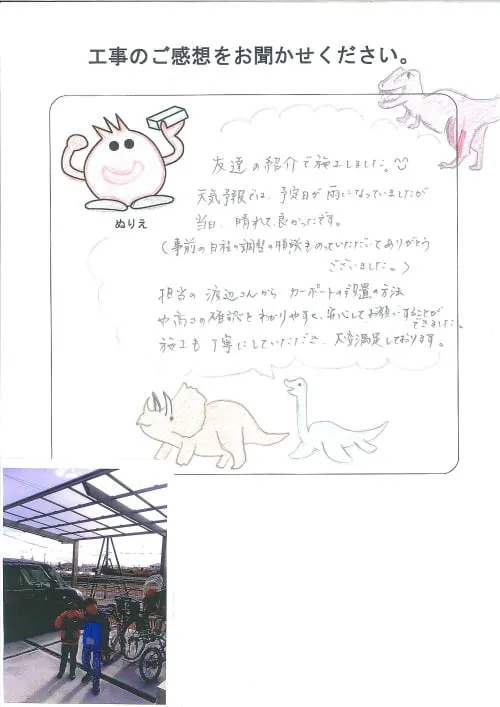 工事のご感想をお聞かせください。
ぬりえ
友達の紹介で施工しました。
天気予報では、予定日が雨になっていましたが
当日、晴れて、良かったです。
(事前の日程の調整の相談をのっていただいてありがとう
ございました。)
担当の渡辺さんから カーポートの設置の方法
や高さの確認をわかりやすく、安心してお願いすることが
できました。
施工も丁寧にしていただき、大変満足しております。